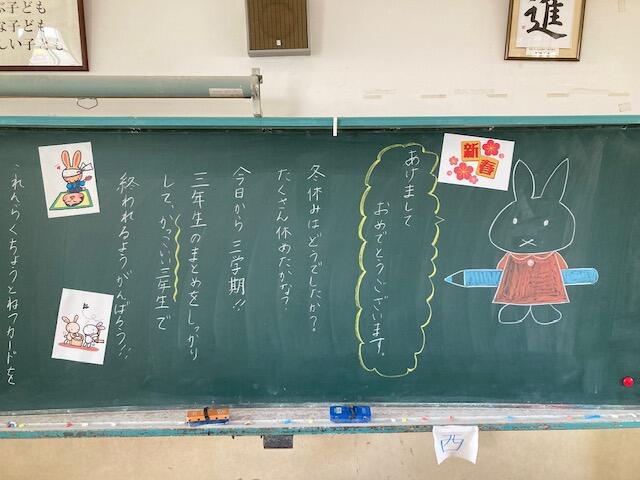 ぶ子ども
な子ども
しい子ども
進
新春
あけまして
おめでとうございます。
冬休みはどうでしたか?
たくさん休めたかな?
今日から三学期!!
三年生のまとめをしっかり
して、かっこいい三年生で
終われるようがんばろう!!
れんらくちょうとねつカードを
西